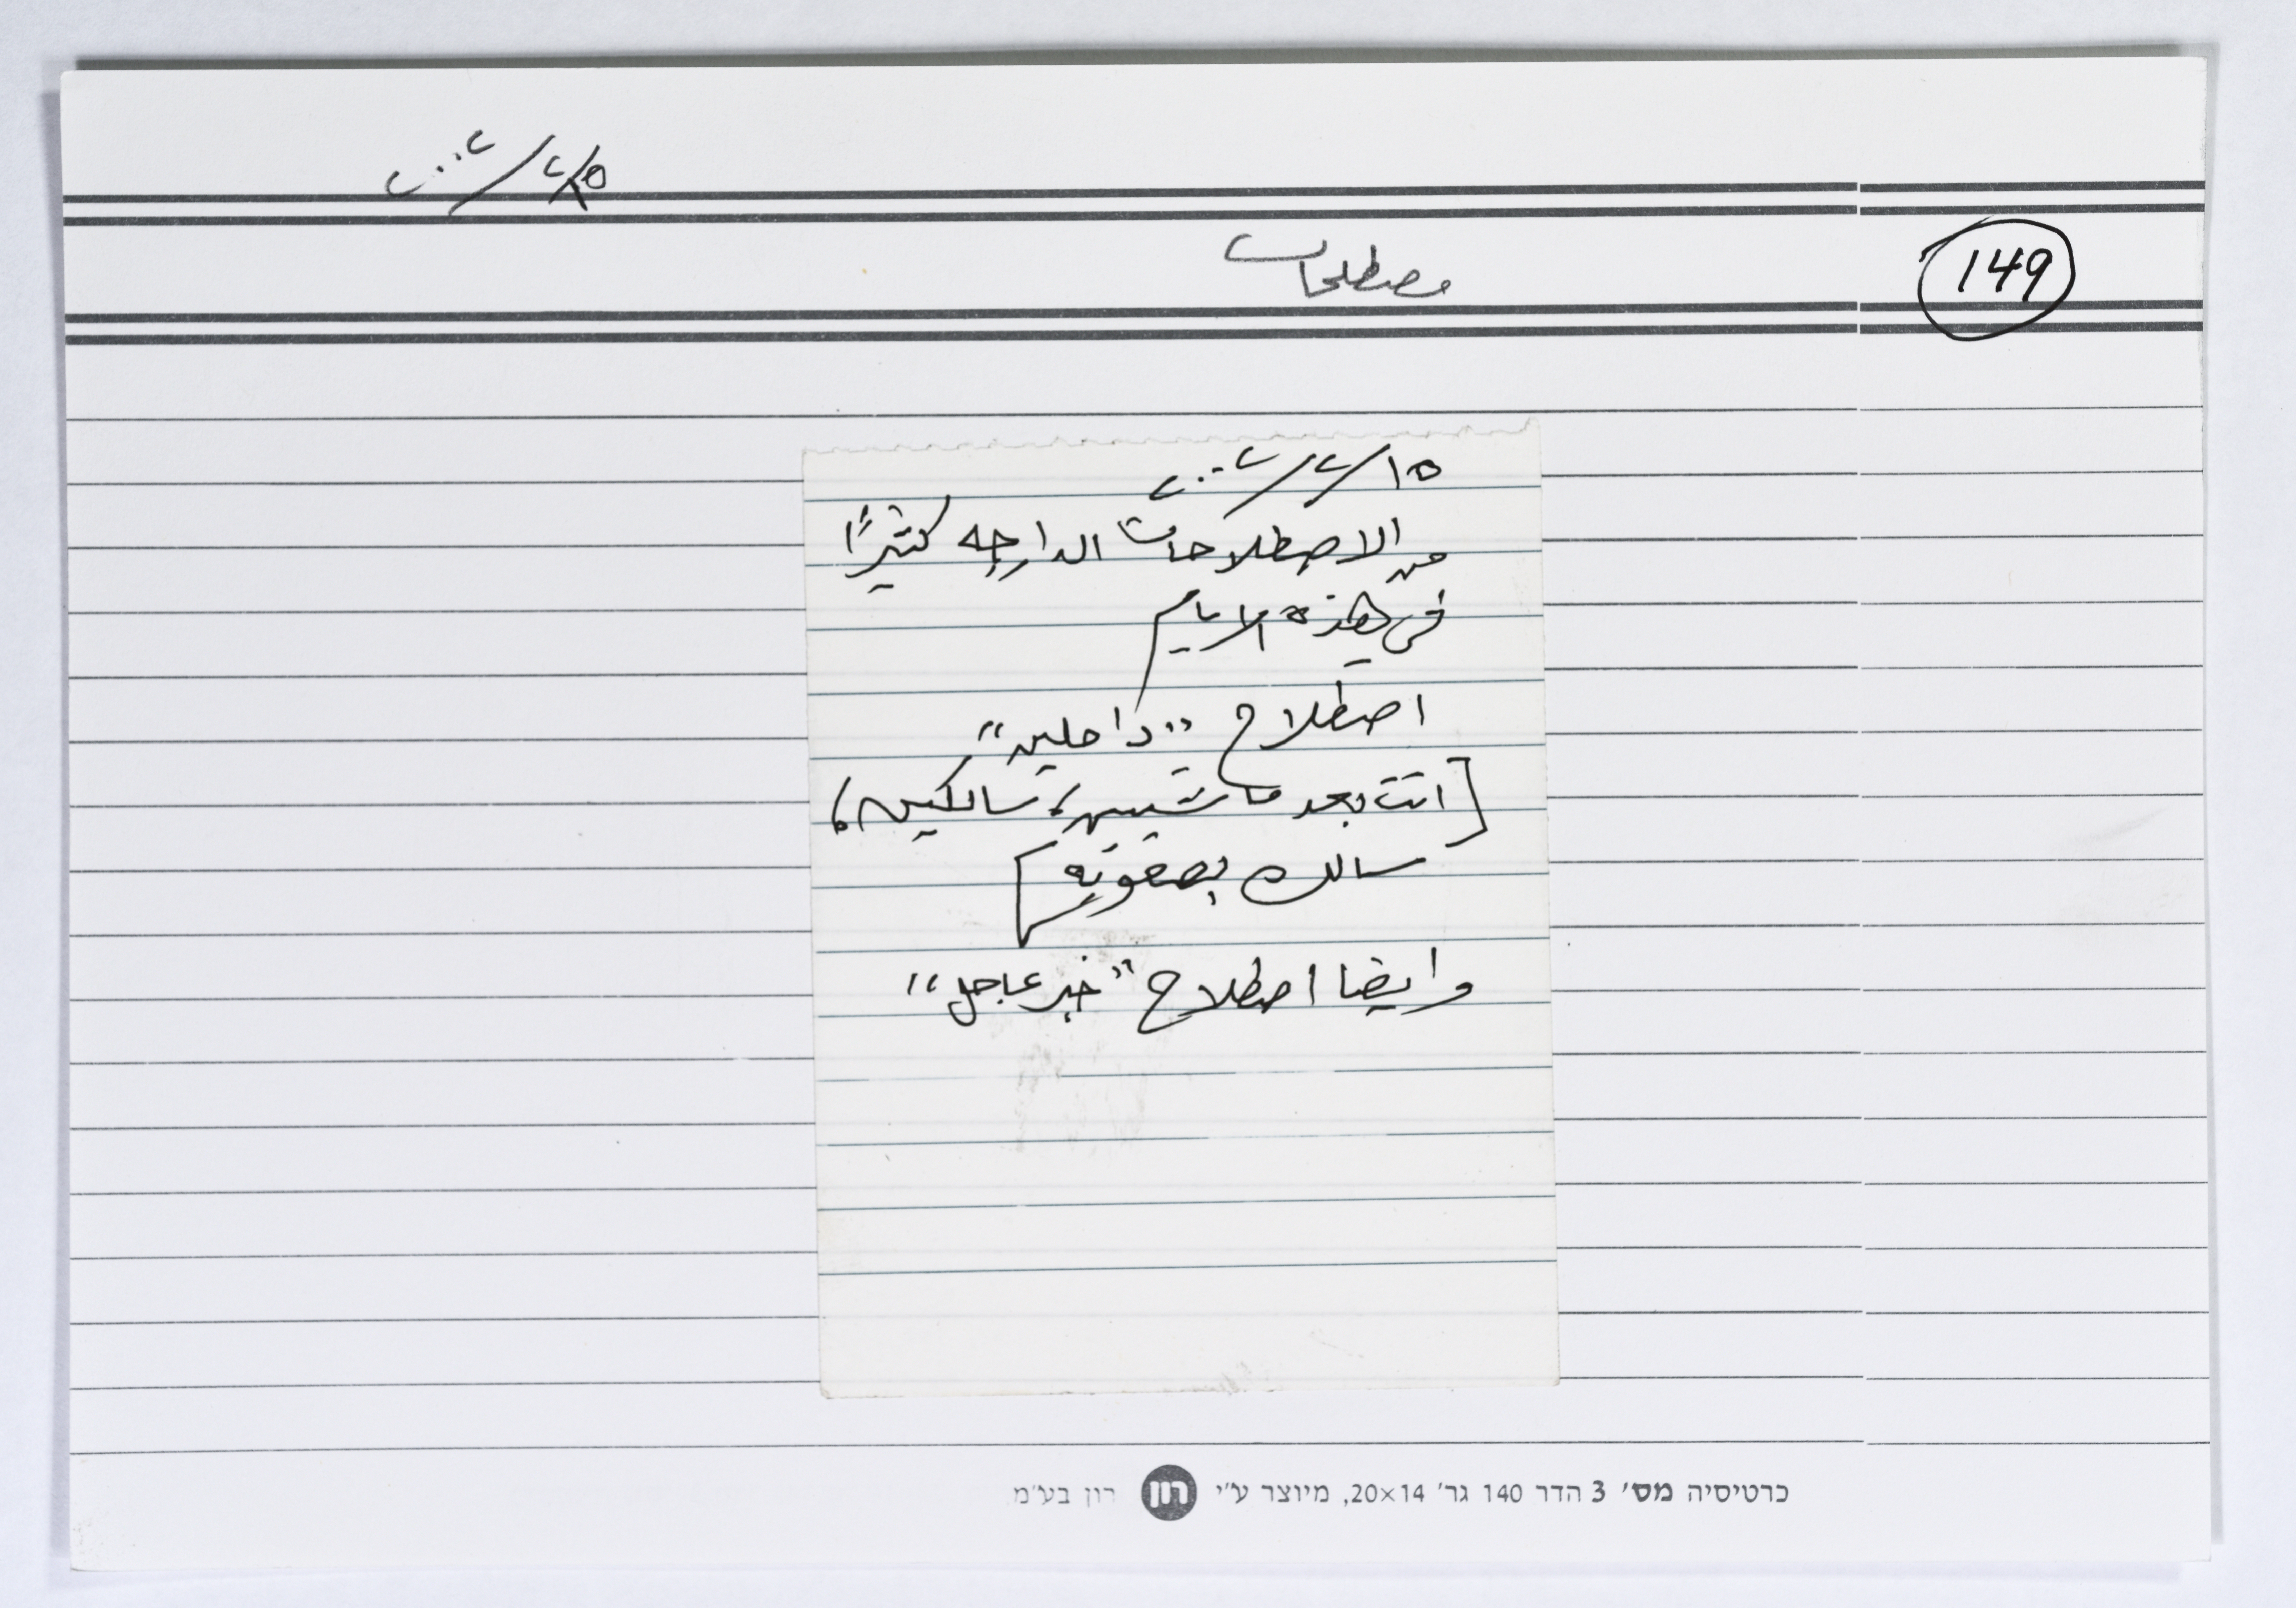 ٢٠٠٢/٢/١٥
مصطلحات
149
٢٠٠٢/٢/١٥
من الاصطلاحات الدارجه كثيرًا
في هذه الايام
اصطلاح "داحلين"
[اتت بعد ماشيين، سالكين،
سالك بصعوبه]
وايضا اصطلاح "خبر عاجل"
כרטיסיה מס' 3 הדר 140 גר' 20×14, מיוצר ע״י רון רון בע״מ